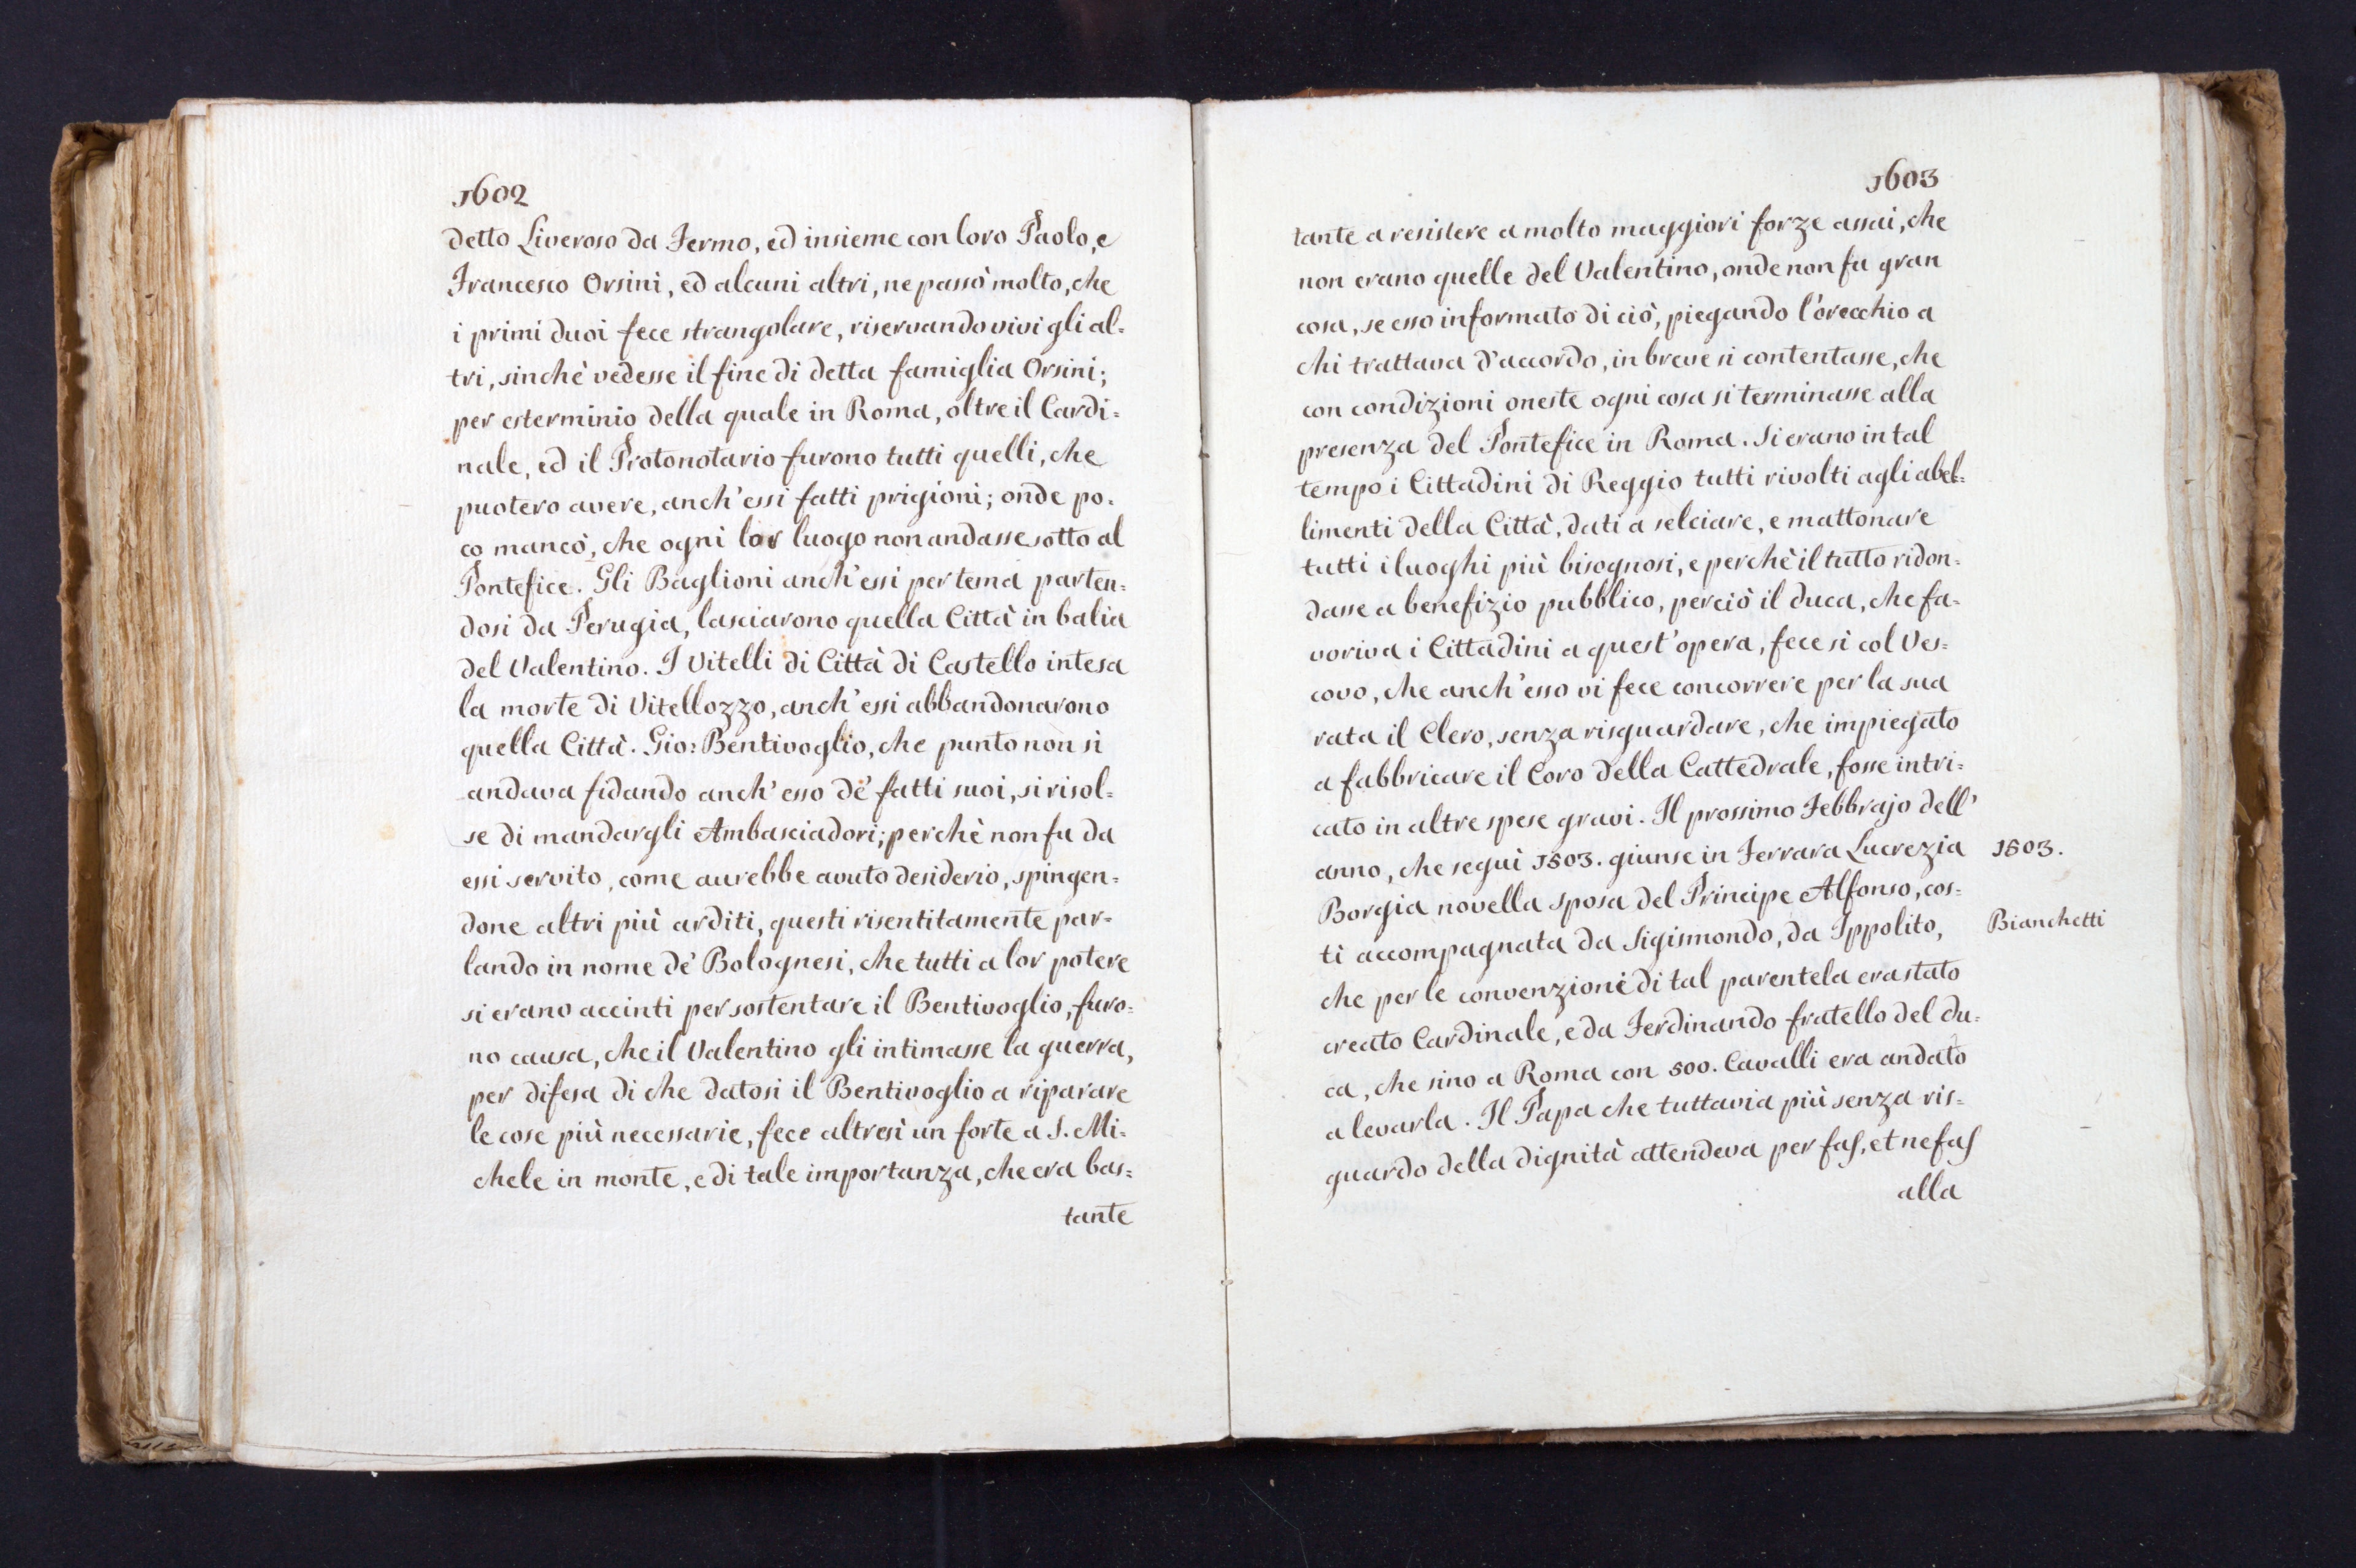 1602
detto Liveroso da Fermo, ed insieme con loro Paolo, e
Francesco Orsini, ed alcuni altri, ne passò molto, che
i primi duoi fece strangolare, riservando vivi gli al=
tri, sinchè vedesse il fine di detta famiglia Orsini;
per esterminio della quale in Roma, oltre il Cardi=
nale, ed il Protonotario furono tutti quelli, che
puotero avere, anch'essi fatti prigioni; onde po=
co mancò, che ogni lor luogo non andasse sotto al
Pontefice. Gli Baglioni anch'essi per tema parten=
dosi da Perugia, lasciarono quella Città in balia
del Valentino. I Vitelli di Città di Castello intesa
la morte di Vitellozzo, anch'essi abbandonarono
quella Città. Gio: Bentivoglio, che punto non si
andava fidando anch'esso de' fatti suoi, si risol=
se di mandargli Ambasciadori; perchè non fu da
essi servito, come avrebbe avuto desiderio, spingen=
done altri più arditi, questi risentitamente par=
lando in nome de' Bolognesi, che tutti a lor potere
si erano accinti per sostentare il Bentivoglio, furo=
no causa, che il Valentino gli intimasse la guerra,
per difesa di che datosi il Bentivoglio a riparare
le cose più necessarie, fece altresì un forte a S. Mi=
chele in monte, e di tale importanza, che era bas=
tante
1603
tante a resistere a molto maggiori forze assai, che
non erano quelle del Valentino, onde non fu gran
cosa, se esso informato di ciò, piegando l'orecchio a
chi trattava d'accordo, in breve si contentasse, che
con condizioni oneste ogni cosa si terminasse alla
presenza del Pontefice in Roma. Si erano in tal
tempo i Cittadini di Reggio tutti rivolti agli abel=
limenti della Città, dati a selciare, e mattonare
tutti i luoghi più bisognosi, e perchè il tutto ridon=
dasse a benefizio pubblico, perciò il duca, che fa=
voriva i Cittadini a quest'opera, fece sì col Ves=
covo, che anch'esso vi fece concorrere per la sua
rata il Clero, senza risguardare, che impiegato
a fabbricare il Coro della Cattedrale, fosse intri=
cato in altre spese gravi. Il prossimo Febbrajo dell'
anno, che seguì 1503. giunse in Ferrara Lucrezia 1503.
Borgia novella sposa del Principe Alfonso, cos=
tì accompagnata da Sigismondo, da Ippolito, Bianchetti
che per le convenzioni di tal parentela era stato
creato Cardinale, e da Ferdinando fratello del du=
ca, che sino a Roma con 500. Cavalli era andato
a levarla. Il Papa che tuttavia più senza ris=
guardo della dignità attendeva per fas, et nefas
alla